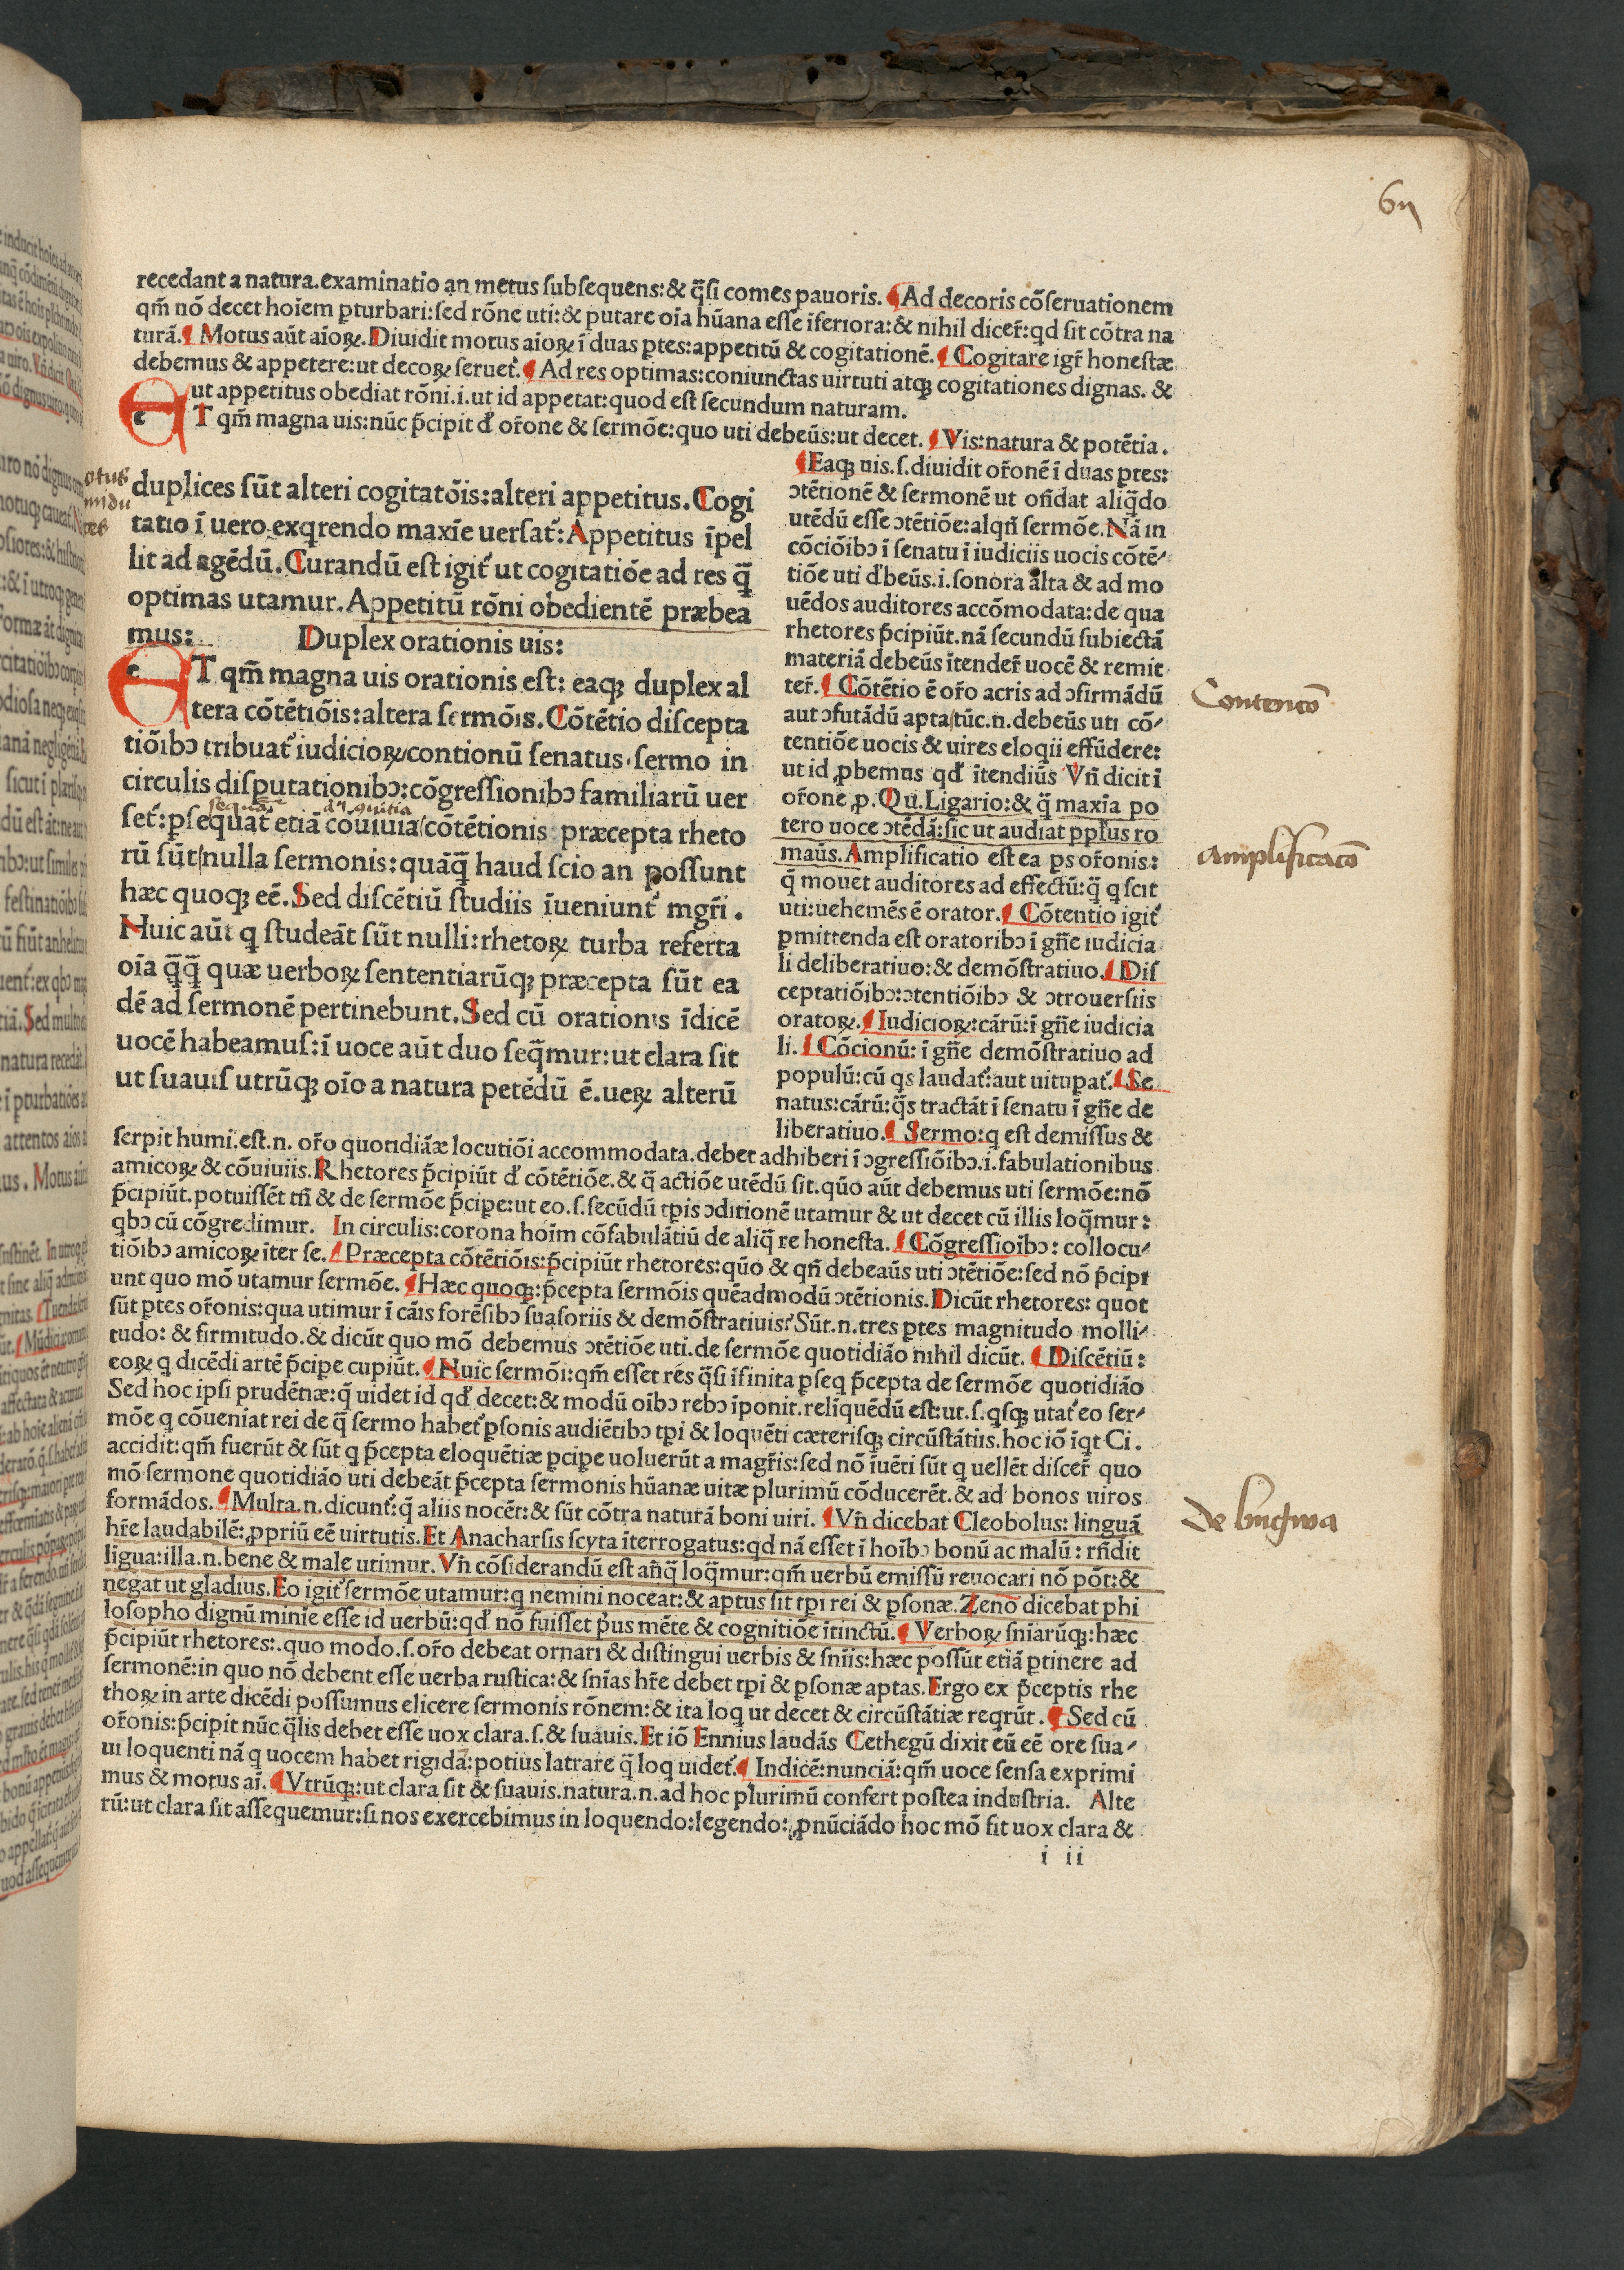 recedant a natura.examinatio an metus ſubſequens:& q̃ſi comes pauoris. ¶Ad decoris cõſeruationem
qm̃ nõ decet hoĩem ꝑturbari:ſed rõne uti:& putare oĩa hũana eſſe ĩferiora:& nihil dicer̃:qd ſit cõtra na
turã.¶ Motus aũt aĩoꝝ.Diuidit motus aĩoꝝ ĩ duas ꝑtes:appetitũ & cogitationẽ.¶ Cogitare igr̃ honeſtæ
debemus & appetere:ut decoꝝ ſeruet᷑.¶ Ad res optimas:coniunctas uirtuti atqꝫ cogitationes dignas. &
ut appetitus obediat rõni.i.ut id appetat:quod eſt ſecundum naturam.
e T qm̃ magna uis:nũc p̃cipit đ or̃one & ſermõe:quo uti debeũs:ut decet. ¶Vis:natura & potẽtia.
duplices ſũt alteri cogitatõis:alteri appetitus.Cogi
tatio ĩ uero exqrendo maxĩe uerſat᷑:Appetitus ĩpel
lit ad agẽdũ.Curandũ eſt igit᷑ ut cogitatiõe ad res q̃
optimas utamur.Appetitũ rõni obedientẽ præbea
mus: Duplex orationis uis:
e T qm̃ magna uis orationis eſt: eaqꝫ duplex al
tera cõtẽtiõis:altera ſermõis.Cõtẽtio diſcepta
tiõibꝰ tribuat᷑ iudicioꝝ/contionũ ſenatus.ſermo in
circulis diſputationibꝰ:cõgreſſionibꝰ familiarũ uer
ſet᷑:ꝑſequat᷑ etiã cõuiuia/cõtẽtionis præcepta rheto
rũ ſũt/nulla ſermonis:quãq̃ haud ſcio an poſſunt
hæc quoqꝫ eẽ.Sed diſcẽtiũ ſtudiis ĩueniunt᷑ mgr̃i.
Huic aũt q ſtudeãt ſũt nulli:rhetoꝝ turba referta
oĩa q̃q̃ quæ uerboꝝ ſententiarũqꝫ præcepta ſũt ea
dẽ ad ſermonẽ pertinebunt.Sed cũ orationis ĩdicẽ
uocẽ habeamuſ:ĩ uoce aũt duo ſeq̃mur:ut clara ſit
ut ſuauiſ utrũqꝫ oĩo a natura petẽdũ ẽ.ueꝝ alterũ
¶Eaqꝫ uis.ſ.diuidit or̃onẽ ĩ duas ꝑtes:
ꝯtẽtionẽ & ſermonẽ ut oñdat aliq̃do
utẽdũ eſſe ꝯtẽtiõe:alqñ ſermõe.Nã in
cõciõibꝰ ĩ ſenatu ĩ iudiciis uocis cõtẽ-
tiõe uti đbeũs.i.ſonora alta & ad mo
uẽdos auditores accõmodata:de qua
rhetores p̃cipiũt.nã ſecundũ ſubiectã
materiã debeũs ĩtender̃ uocẽ & remit
ter̃.¶ Cõtẽtio ẽ or̃o acris ad ꝯfirmãdũ
aut ꝯfutãdũ apta/tũc.n.debeũs uti cõ-
tentiõe uocis & uires eloqii effũdere:
ut id ꝓbemus qđ ĩtendiũs Vñ dicit ĩ
or̃one.p.Qu.Ligario:& q̃ maxĩa po
tero uoce ꝯtẽdã:ſic ut audiat pp̃lus ro
maũs.Amplificatio eſt ea ꝑs or̃onis:
q̃ mouet auditores ad effectũ:q̃ q ſcit
uti:uehemẽs ẽ orator.¶ Cõtentio igit᷑
ꝑmittenda eſt oratoribꝰ ĩ gñe iudicia
li deliberatiuo:& demõſtratiuo.¶ Diſ
ceptatiõibꝰ:ꝯtentiõibꝰ & ꝯtrouerſiis
oratoꝝ.¶ Iudicioꝝ:cãrũ:ĩ gñe iudicia
li.¶ Cõcionũ: ĩ gñe demõſtratiuo ad
populũ:cũ qs laudat᷑:aut uituꝑat᷑.¶ Se
natus:cãrũ:q̃s tractãt ĩ ſenatu ĩ gñe de
liberatiuo.¶ Sermo:q eſt demiſſus &
ſerpit humi.eſt.n. or̃o quotidiãæ locutiõi accommodata.debet adhiberi ĩ ꝯgreſſiõibꝰ.i.fabulationibus
amicoꝝ & cõuiuiis.Rhetores p̃cipiũt đ cõtẽtiõe.& q̃ actiõe utẽdũ ſit.qũo aũt debemus uti ſermõe:nõ
p̃cipiũt.potuiſſẽt tñ & de ſermõe p̃cipe:ut eo.ſ.ſecũdũ tꝑis ꝯditionẽ utamur & ut decet cũ illis loq̃mur:
qbꝰ cũ cõgredimur. In circulis:corona hoĩm cõfabulãtiũ de aliq̃ re honeſta.¶ Cõgreſſioĩbꝰ: collocu-
tiõibꝰ amicoꝝ ĩter ſe.¶ Præcepta cõtẽtiõis:p̃cipiũt rhetores:qũo & qñ debeaũs uti ꝯtẽtiõe:ſed nõ p̃cipi
unt quo mõ utamur ſermõe.¶Hæc quoqꝫ:p̃cepta ſermõis quẽadmodũ ꝯtẽtionis.Dicũt rhetores: quot
ſũt ꝑtes or̃onis:qua utimur ĩ cãis forẽſibꝰ ſuaſoriis & demõſtratiuis:Sũt.n.tres ꝑtes magnitudo molli-
tudo: & firmitudo.& dicũt quo mõ debemus ꝯtẽtiõe uti.de ſermõe quotidião nihil dicũt. ¶Diſcẽtiũ:
eoꝝ q dicẽdi artẽ p̃cipe cupiũt.¶Huic ſermõi:qm̃ eſſet res q̃ſi ĩfinita ꝑſeq p̃cepta de ſermõe quotidião
Sed hoc ipſi prudẽtiæ:q̃ uidet id qđ decet:& modũ oĩbꝰ rebꝰ ĩponit.reliquẽdũ eſt:ut.ſ.qſqꝫ utat᷑ eo ſer-
mõe q cõueniat rei de q̃ ſermo habet᷑ ꝑſonis audiẽtibꝰ tꝑi & loquẽti cæteriſqꝫ circũſtãtiis.hoc iõ ĩqt Ci.
accidit:qm̃ fuerũt & ſũt q p̃cepta eloquẽtiæ ꝑcipe uoluerũt a magr̃is:ſed nõ ĩuẽti ſũt q uellẽt diſcer̃ quo
mõ ſermone quotidião uti debeãt p̃cepta ſermonis hũanæ uitæ plurimũ cõducerẽt.& ad bonos uiros
formãdos.¶Multa.n.dicunt᷑:q̃ aliis nocẽt:& ſũt cõtra naturã boni uiri. ¶Vñ dicebat Cleobolus: linguã
hr̃e laudabilẽ:ꝓpriũ eẽ uirtutis.Et Anacharſis ſcyta ĩterrogatus:qd nã eſſet ĩ hoĩbꝰ bonũ ac malũ: rñdit
ligua:illa.n.bene & male utimur.Vñ cõſiderandũ eſt añq̃ loq̃mur:qm̃ uerbũ emiſſũ reuocari nõ põt:&
negat ut gladius.Eo igit᷑ ſermõe utamur:q nemini noceat:& aptus ſit tꝑi rei & ꝑſonæ.Zeno dicebat phi
loſopho dignũ minĩe eſſe id uerbũ:qđ nõ fuiſſet p̃us mẽte & cognitiõe ĩtinctũ.¶Verboꝝ ſnĩarũqꝫ:hæc
p̃cipiũt rhetores:.quo modo.ſ.or̃o debeat ornari & diſtingui uerbis & ſnĩis:hæc poſſũt etiã ꝑtinere ad
ſermonẽ:in quo nõ debent eſſe uerba ruſtica:& ſnĩas hr̃e debet tꝑi & ꝑſonæ aptas.Ergo ex p̃ceptis rhe
thoꝝ in arte dicẽdi poſſumus elicere ſermonis rõnem:& ita loq ut decet & circũſtãtiæ reqrũt.¶Sed cũ
or̃onis:p̃cipit nũc q̃lis debet eſſe uox clara.ſ.& ſuauis.Et iõ Ennius laudãs Cethegũ dixit eũ eẽ ore ſua-
ui loquenti nã q uocem habet rigidã:potius latrare q̃ loq uidet᷑.¶ Indicẽ:nunciã:qm̃ uoce ſenſa exprimi
mus & motus aĩ.¶Vtrũqꝫ:ut clara ſit & ſuauis.natura.n.ad hoc plurimũ confert poſtea induſtria. Alte
rũ:ut clara ſit aſſequemur:ſi nos exercebimus in loquendo:legendo:ꝓnũciãdo hoc mõ fit uox clara &
i ii
Contentõ
Amplificatõ
De lingua